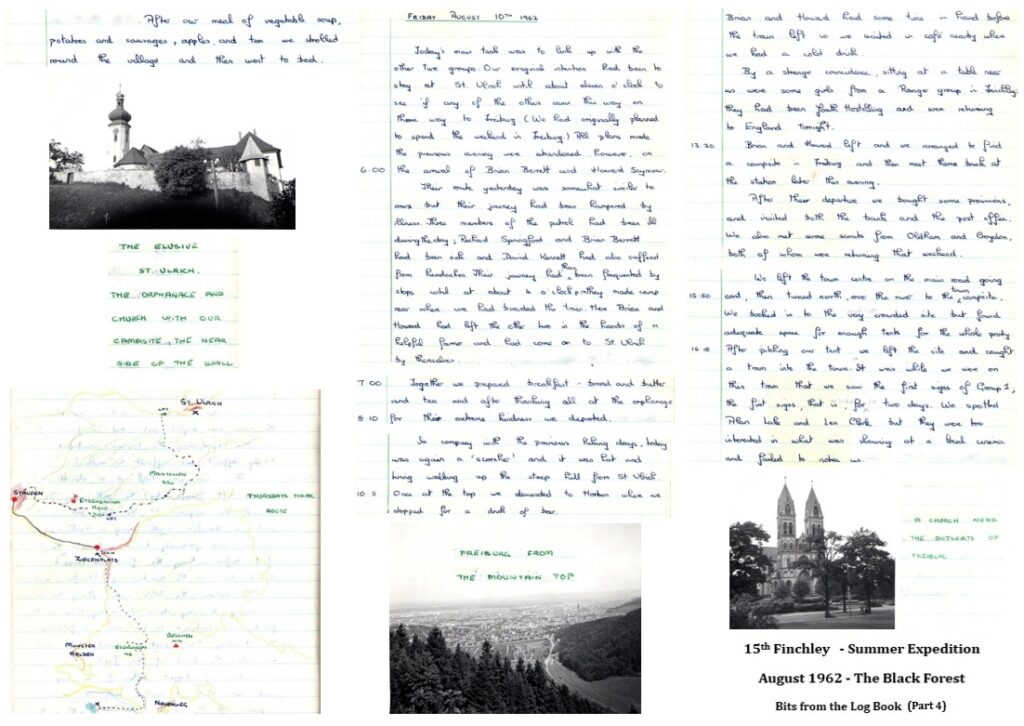 After our meal of vegetable soup,
potatoes and sausages, apples, and tea we strolled
round the village and then went to bed.
THE ELUSIVE
ST. ULRICH.
THE ORPHANAGE AND
CHURCH WITH OUR
CAMPSITE, THE NEAR
SIDE OF THE WALL
ST. ULRICH
STAUFEN
THURSDAYS
ROUTE
ZIEGENPLATZ
MUNSTER
HALDEN
BELCHEN
NEUENWEG
FRIDAY AUGUST 10TH 1962
Today's main task was to link up with the
other two groups. Our original intention had been to
stay at St. Ulrich until about eleven o'clock to
see if any of the others came this way on
there way to Freiburg. (We had originally planned
to spend the weekend in Freiburg) All plans made
the previous evening were abandoned, however, on
6.00 the arrival of Brian Barrett and Howard Seymour.
Their route yesterday was somewhat similar to
ours but their journey had been hampered by
illness. Three members of the patrol had been ill
during the day; Richard Springford and Brian Barrett
had been sick and David Kennett had also suffered
from headaches. Their journey had been frequented by
stops until at about 4 o'clock they made camp
near where we had boarded the train. Here Brian and
Howard had left the other two in the hands of a
helpful farmer and had come on to St. Ulrich
by themselves.
7.00 Together we prepared breakfast - bread and butter
and tea and after thanking all at the orphanage
8.10 for their extreme kindness we departed.
In company with the previous hiking days, today
was again a 'scorcher' and it was hot and
tiring walking up the steep hill from St Ulrich.
10.5 Once at the top we descended to Horben where we
stopped for a drink of beer.
FREIBURG FROM
THE MOUNTAIN TOP
Brian and Howard had some time in hand before
the train left so we waited in café nearby where
we had a cold drink.
By a strange coincidence, sitting at a table near
us were some girls from a Ranger group in Finchley;
they had been Youth Hostelling and were returning
to England tonight.
13.20 Brian and Howard left and we arranged to find
a campsite in Freiburg and then meet them back at
the station later this evening.
After their departure we bought some provisions,
and visited both the bank and the post office.
We also met some scouts from Oldham and Croydon,
both of whom were returning that weekend.
We left the town centre on the main road going
15.50 east, then turned north, over the river to the town campsite.
We booked in to the very crowded site but found
adequate space for enough tents for the whole party.
16.15 After pitching our tent we left the site and caught
a tram into the town. It was while we were on
this tram that we saw the first signs of Group 1;
the first signs, that is, for two days. We spotted
Alan Lake and Len Clark but they were too
interested in what was showing at a local cinema
and failed to notice us.
A CHURCH NEAR
THE OUTSKIRTS OF
FREIBURG
15th Finchley - Summer Expedition
August 1962 - The Black Forest
Bits from the Log Book (Part 4)